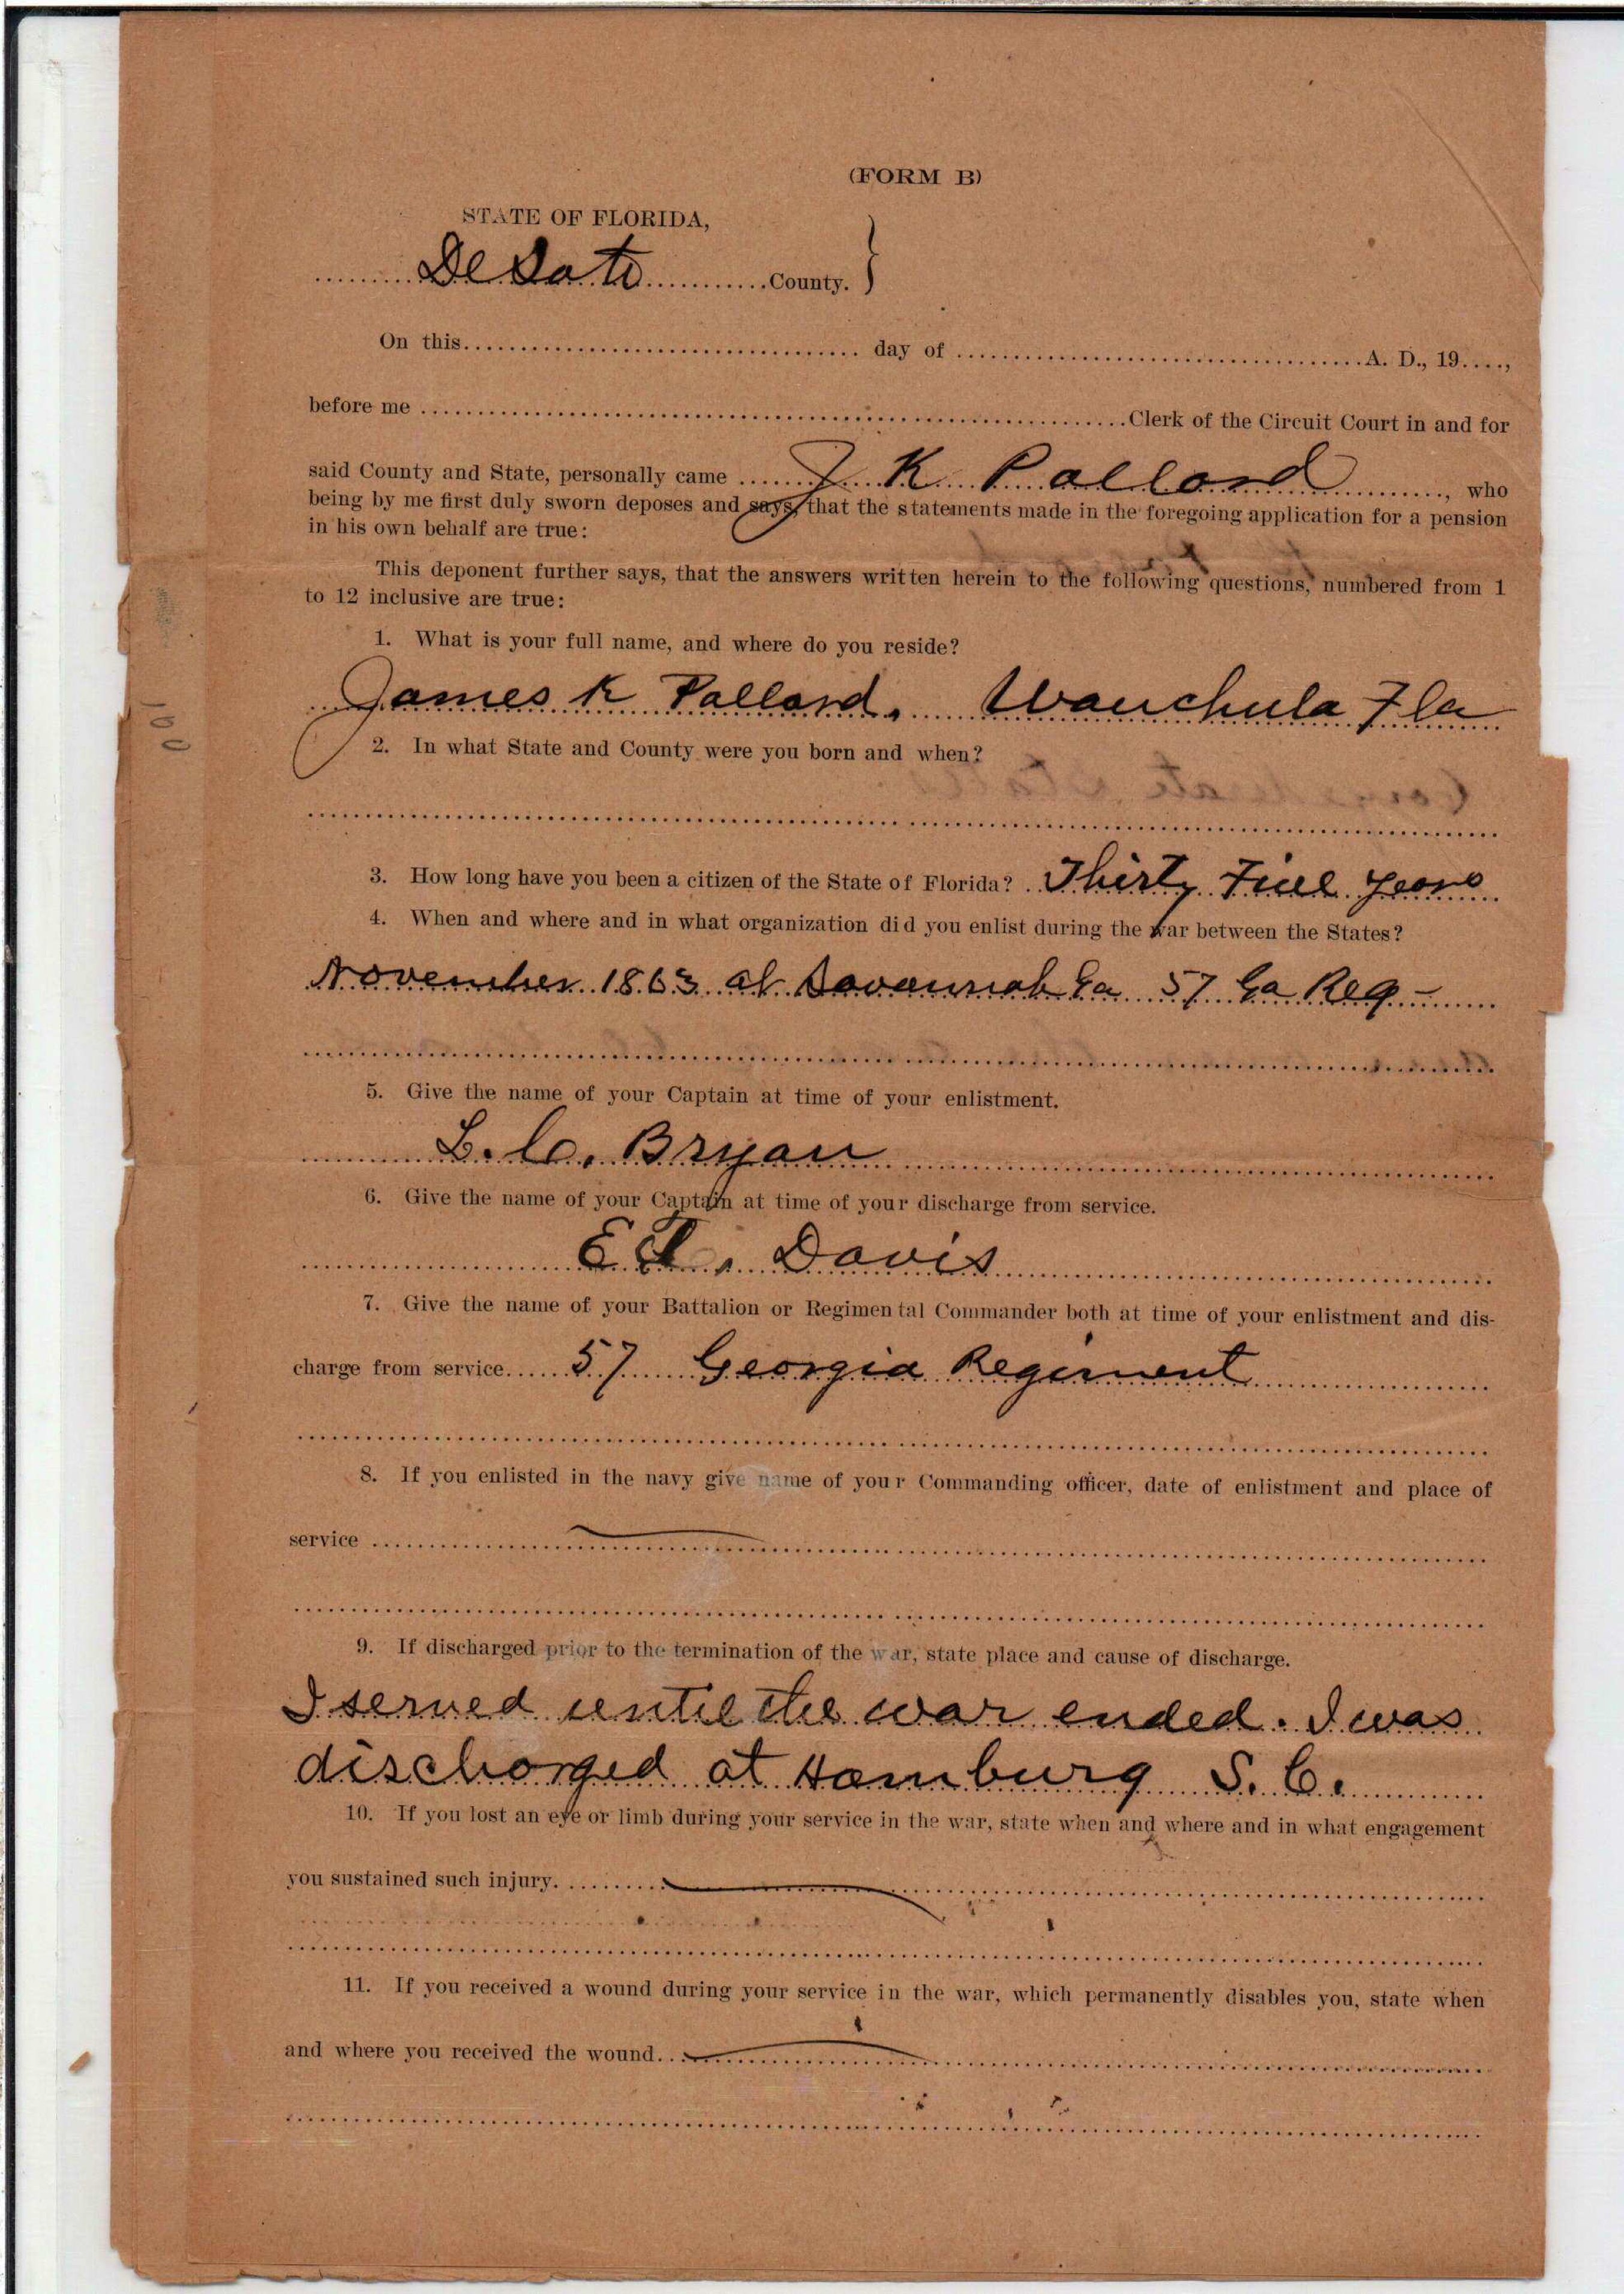 (FORM B)
STATE OF FLORIDA,
De Soto County.
On this day of A. D., 19....,
before me Clerk of the Circuit Court in and for
said County and State, personally came J K Pollard, who
being by me first duly sworn deposes and says, that the statements made in the foregoing application for a pension
in his own behalf are true:
This deponent further says, that the answers written herein to the following questions, numbered from 1
to 12 inclusive are true:
1. What is your full name, and where do you reside?
James K Pollard. Wauchula Fla
2. In what State and County were you born and when?
3. How long have you been a citizen of the State of Florida? Thirty Five Years
4. When and where and in what organization did you enlist during the war between the States?
November 1863 at Savannah Ga 57 Ga Reg-
5. Give the name of your Captain at time of your enlistment.
L. C. Bryan
6. Give the name of your Captain at time of your discharge from service.
Davis
7. Give the name of your Battalion or Regimental Commander both at time of your enlistment and dis-
charge from service 57 Georgia Regiment
8. If you enlisted in the navy give name of your Commanding officer, date of enlistment and place of
service
9. If discharged prior to the termination of the war, state place and cause of discharge.
I served until the war ended. I was
discharged at Hamburg S. C.
10. If you lost an eye or limb during your service in the war, state when and where and in what engagement
you sustained such injury.
11. If you received a wound during your service in the war, which permanently disables you, state when
and where you received the wound.